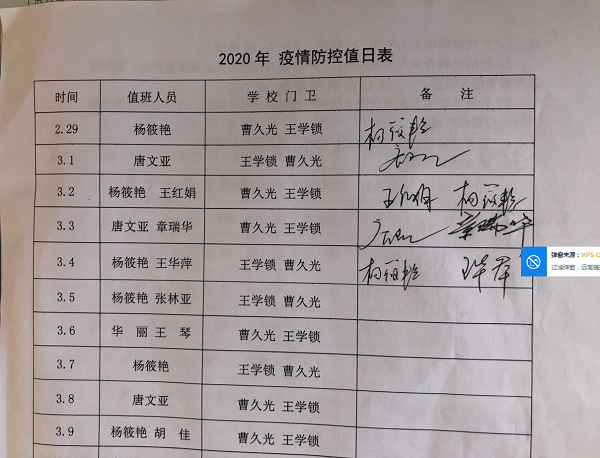 2020年 疫情防控值日表
时间 值班人员 学校门卫 备 注
2.29 杨筱艳 曹久光 王学锁 杨筱艳
3.1 唐文亚 王学锁 曹久光
3.2 杨筱艳 王红娟 曹久光 王学锁 王红娟 杨筱艳
3.3 唐文亚 章瑞华 王学锁 曹久光 章瑞华
3.4 杨筱艳 王华萍 王学锁 曹久光 杨筱艳
3.5 杨筱艳 张林亚 王学锁 曹久光
3.6 华 丽 王 琴 曹久光 王学锁
3.7 杨筱艳 王学锁 曹久光
3.8 唐文亚 曹久光 王学锁
3.9 杨筱艳 胡 佳 曹久光 王学锁
弹窗来源：WPS
过滤弹窗，远离